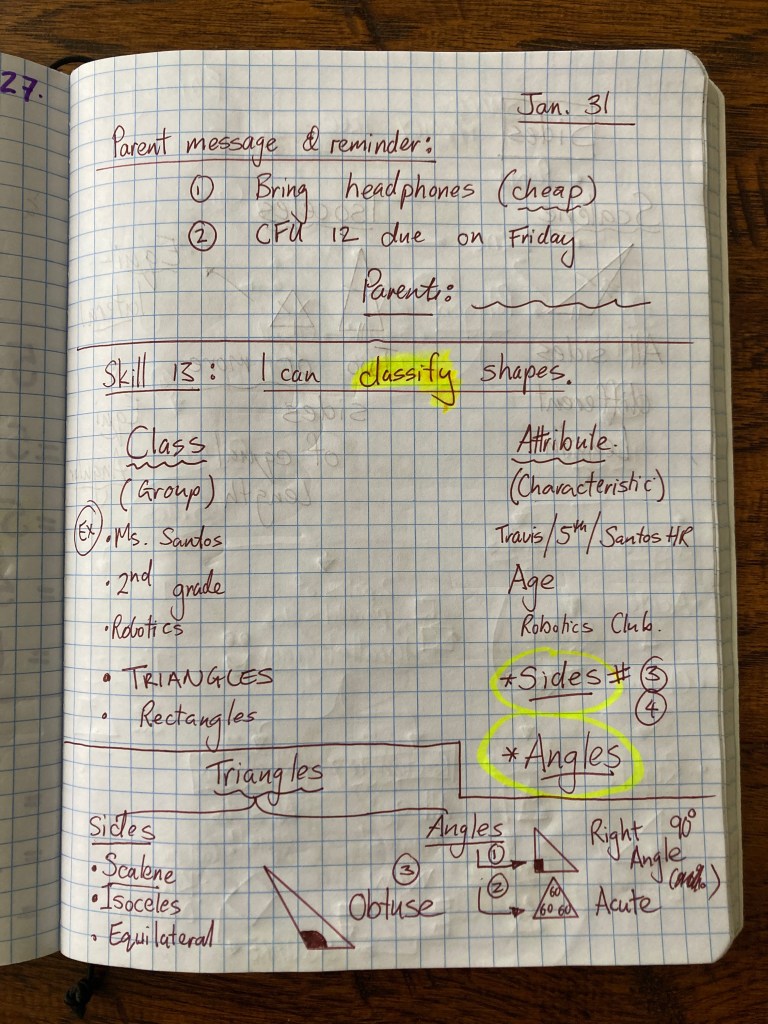 27.
Jan. 31
Parent message & reminder:
① Bring headphones (cheap)
② CFU 12 due on Friday
Parents:
Skill 13: I can classify shapes.
Class Attribute.
(Group) (Characteristic)
Ex • Ms. Santos Travis/5th/Santos HR
• 2nd grade Age
• Robotics Robotics Club.
• TRIANGLES *Sides # ③
• Rectangles ④
*Angles
Triangles
Sides Angles ① Right 90°
• Scalene Angle
• Isoceles ③ Obtuse ② 60 60 60 Acute
• Equilateral